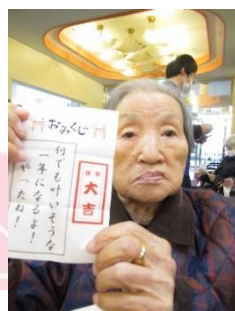 おみくじ
運勢
大吉
何でも叶いそうな
一年になるよ！
やったね！